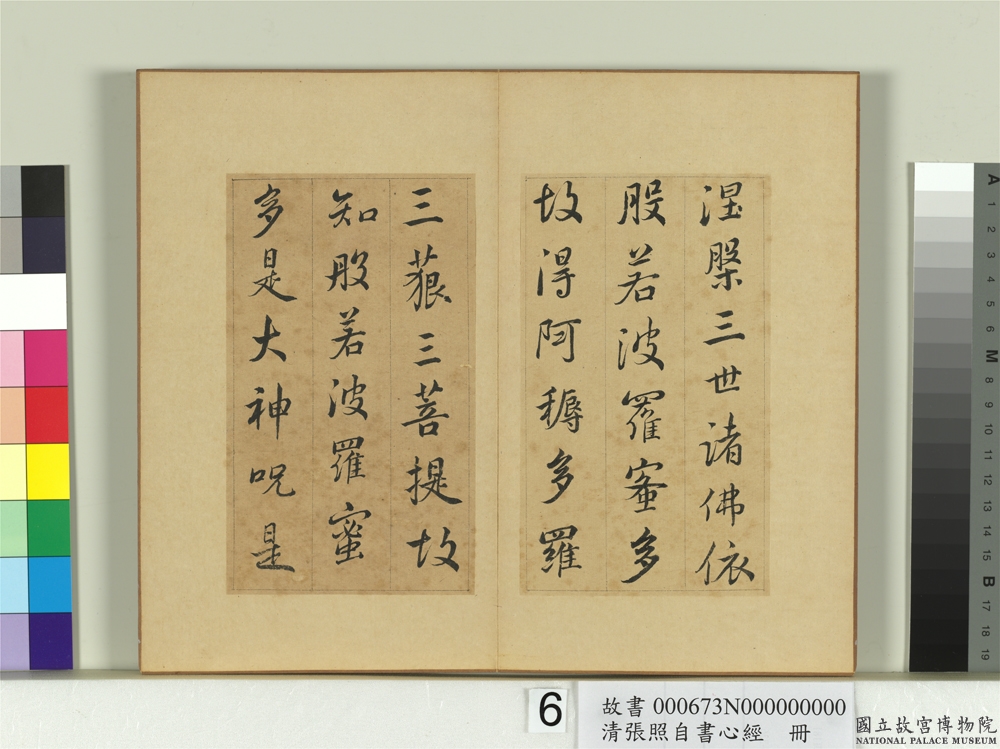 涅槃三世諸佛依
般若波羅蜜多
故得阿耨多羅
三藐三菩提故
知般若波羅蜜
多是大神呪是
6
故書 000673N000000000
清張照自書心經 冊
國立故宮博物院
NATIONAL PALACE MUSEUM
A
1
2
3
4
5
6
M
8
9
10
11
12
13
14
15
B
17
18
19